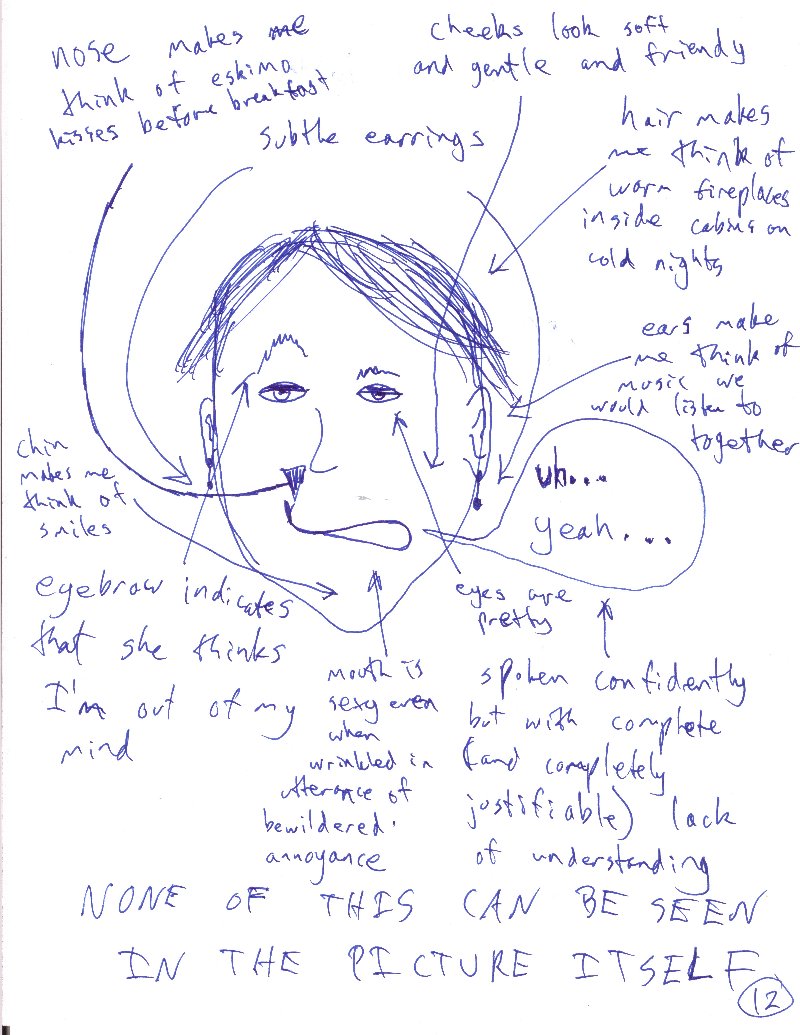 nose makes me
think of eskimo
kisses before breakfast
subtle earrings
cheeks look soft
and gentle and friendly
hair makes
me think of
warm fireplaces
inside cabins on
cold nights
ears make
me think of
music we
would listen to
together
chin
makes me
think of
smiles
uh...
yeah....
eyebrow indicates
that she thinks
I'm out of my
mind
mouth is
sexy even
when
wrinkled in
utterance of
bewildered
annoyance
eyes are
pretty
spoken confidently
but with complete
(and completely
justifiable) lack
of understanding
NONE OF THIS CAN BE SEEN
IN THE PICTURE ITSELF
12